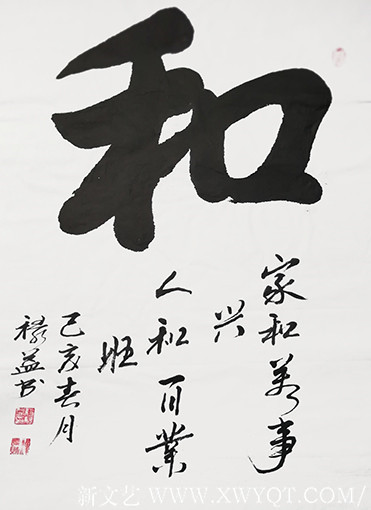 和
家和萬事
兴
人和百業
旺
己亥春月
益书
新文艺 WWW.XWYQT.COM/